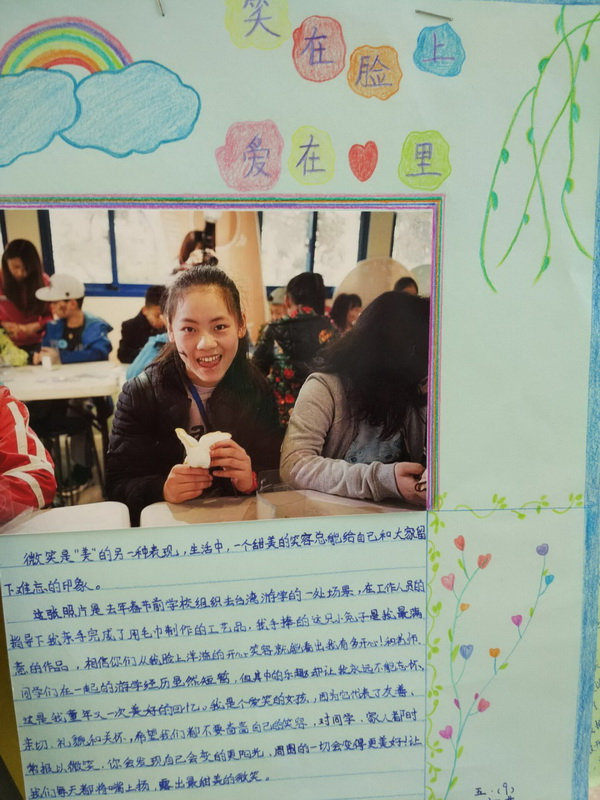 笑在脸上
爱在里
微笑是“美”的另一种表现，生活中，一个甜美的笑容总能给自己和大家留
下难忘的印象。
这张照片是去年春节前学校组织去台湾游学的一处场景，在工作人员的
指导下我亲手完成了用毛巾制作的工艺品，我手捧的这只小兔子是我最满
意的作品，相信你们从我脸上洋溢的开心笑容就能看出我有多开心！和老师、
同学们在一起的游学经历虽然短暂，但其中的乐趣却让我永远不能忘怀，
这是我童年又一次美好的回忆。我是个爱笑的女孩，因为它代表了友善、
亲切、礼貌和关怀，希望我们都不要吝啬自己的笑容，对同学、家人都时
常报以微笑，你会发现自己会变的更阳光，周围的一切会变得更美好！让
我们每天都将嘴上扬，露出最甜美的微笑。
五.(9)